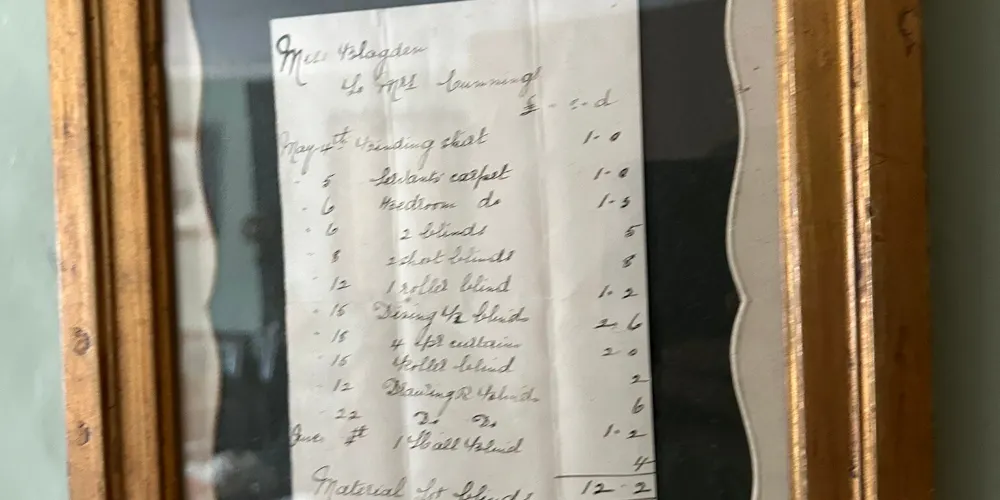 Miss Blagden
To Mrs Cummings
£ - s - d
May 4th Binding skat 1-0
" 5 Servants carpet 1-0
" 6 Bedroom do 1-3
" 6 2 blinds 5
" 8 2 short blinds 8
" 12 1 roller blind 1-2
" 15 Dining R blinds 2-6
" 15 4 pr curtains 2 0
" 15 roller blind 2
" 12 Drawing R Blinds 6
" 22 Do Do 1-2
1 Hall Blind 4
Material for blinds 12-2